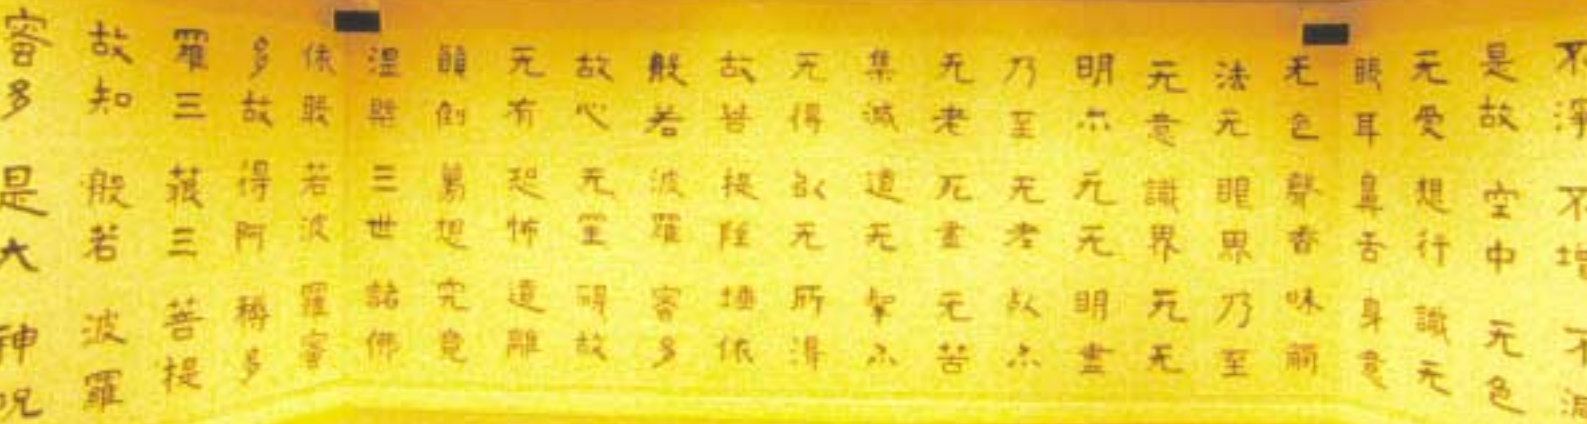 不淨不增不減
是故空中无色
无受想行識无
眼耳鼻舌身意
无色聲香味觸
法无眼界乃至
无意識界无无
明亦无无明盡
乃至无老死亦
无老死盡无苦
集滅道无智亦
无得以无所得
故菩提薩埵依
般若波羅蜜多
故心无罣碍故
无有恐怖遠離
顛倒夢想究竟
涅槃三世諸佛
依般若波羅蜜
多故得阿耨多
羅三藐三菩提
故知般若波羅
蜜多是大神呪